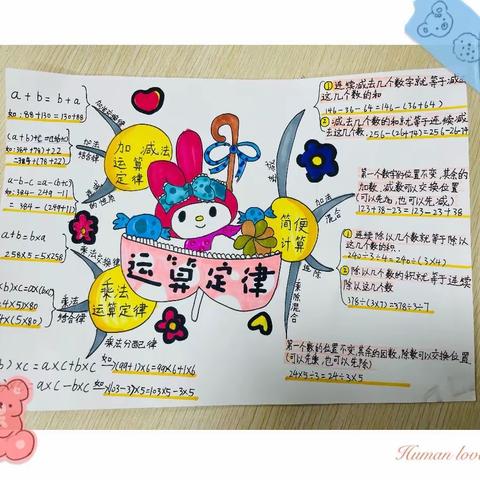 a+b=b+a
如:88+130=130+88
(a+b)+c=a+(b+c)
如:364+(78)+22
=364+(78+22)
a-b-c=a-(b+c)
如:384-249-11
=384-(249+11)
a+b=bxa
258X5=5X258
b)xc=ax(bxc)
4X5)X80
4X(5X80)
b)xc=axc+bxc 如(99+1)x6=99x6+1x6
axc-bxc 如(103-3)X5=103X5-3X5
加法
结合律
乘法交换律
乘法
结合律
乘法分配律
加减法
运算
定律
乘法
运算定律
运算定律
简便
计算
加减
混合
连除
乘除混合
①连续减去几个数字就等于减去
这几个数的和
146-36-64=146-(36+64)
②减去几个数的和就等于连续减
去这几个数.256-(26+74)=256-26-74
第一个数字的位置不变,其余的
加数,减数可以交换位置
(可以先加,也可以先减)
123+38-23=123-23+38
①连续除以几个数就等于除以
这几个数的积.
240÷3÷4=240÷(3X4)
②除以几个数的积就等于连续
除以这几个数
378÷(3X7)=378÷3÷7
第一个数的位置不变,其余的因数,除数可以交换位置
(可以先乘,也可以先除)
24X5÷3=24÷3X5
Human love